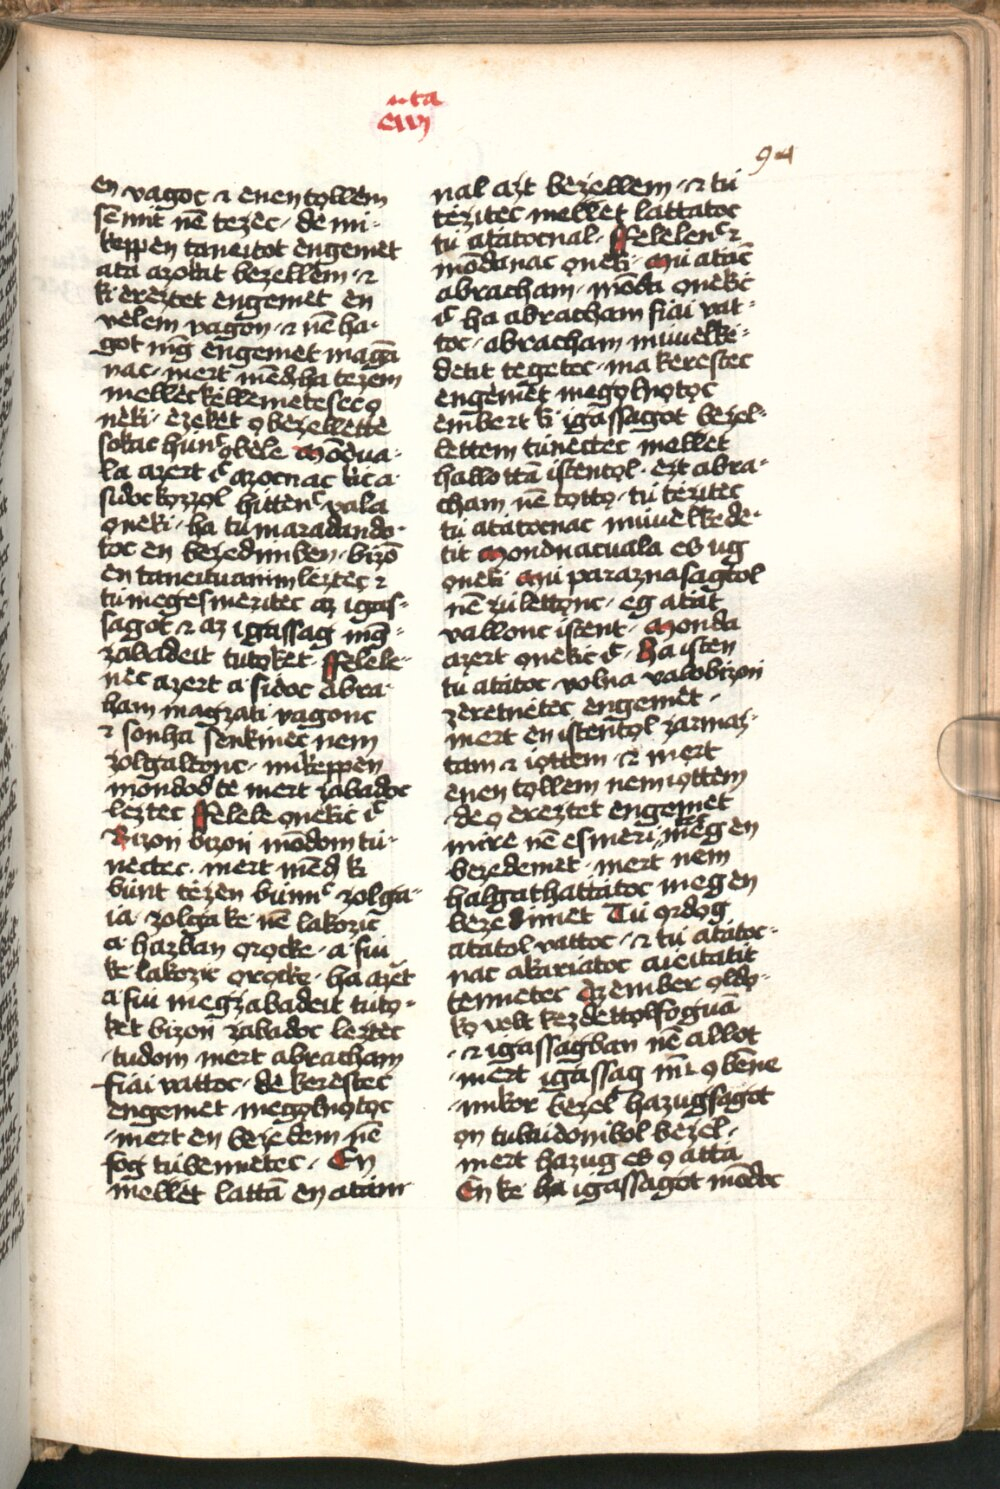 94
en vagoc ⁊ enen tollem
sēmit nē tezec · de mi-
keppen taneitot engemet
ata azokat bezellem · ⁊
ki ereztet engemet en
velem vagon · ⁊ nē ha-
got mḡ engemet maga
nac · mert mēdha tezem
mellec kellemetesec o
neki · ezeket o bezellette
sokac hunc̄ obele Mōdua-
la azert ic̄ azocnac kic a
sidoc kozzol hittenc̄ vala
oneki · ha tu maradando-
toc en bezedimben · bizō
en taneituanim leztec ⁊
tu meg esmeritec az igas-
sagot ⁊ az igassag mḡ
zabadeit tutoket · Felele-
nec azert a sidoc abra-
ham magzati vagonc
⁊ sonha senkinec nem
zolgaltonc · mikeppen
mondod te mert zabadoc
leztec Felele onekic ic̄
Bizon bizon mōdom tu-
nectec · mert mēd ki
bunt tezen bunnc̄ zolga-
ia · zolga ke nē lakozic
a hazban orocke · a fiu
ke lakozic orocke · ha azet
a fiu meg zabadeit tuto-
ket bizon zabadoc leztec
tudom mert abracham
fiai vattoc · de kerestec
engemet megolnotoc
mert en bezedem nē
fog tu bennetec · En
mellet lattā en atam-
nal azt bezellem · ⁊ tu
tezitec mellet lattatoc
tu atatocnal · Felelenc̄ ⁊
mōdanac oneki · Mi atāc
abracham · mōda onekic
ic̄ ha abracham fiai vat-
toc · abracham miuelke-
detit tegetec · ma kerestec
engemet megolnotoc
embert ki igassagot bezel-
lettem tunectec mellet
hallottā istentol · ezt abra-
cham nē totto · tu tezitec
tu atatocnac miuelkede-
tit Mondnacuala es ug
oneki Mi paraznasagtol
nē zulettonc · eg atāt
vallonc istent · Monda
azert onekic ic̄ · Ha isten
tu atatoc volna valobizon
zeretnetec engemet ·
mert en istentol zarmaz-
tam ⁊ iottem · ⁊ mert
enen tollem nem iottem
de o ereztet engemet
mire nē esmeritec meg en
bezedemet · mert nem
halgathattatoc meg en
bezedimet Tu ordog
atatol vattoc · ⁊ tu atatoc-
nac akariatoc aieitatit
tennetec Az ember oldo-
ko volt kezdettolfoguā
⁊ igassagban nē allot
mert igassag nīc obēne
mikor bezel hazugsagot
on tulaidonibol bezel ·
mert hazug es o atta
En ke ha igassagot mōdoc